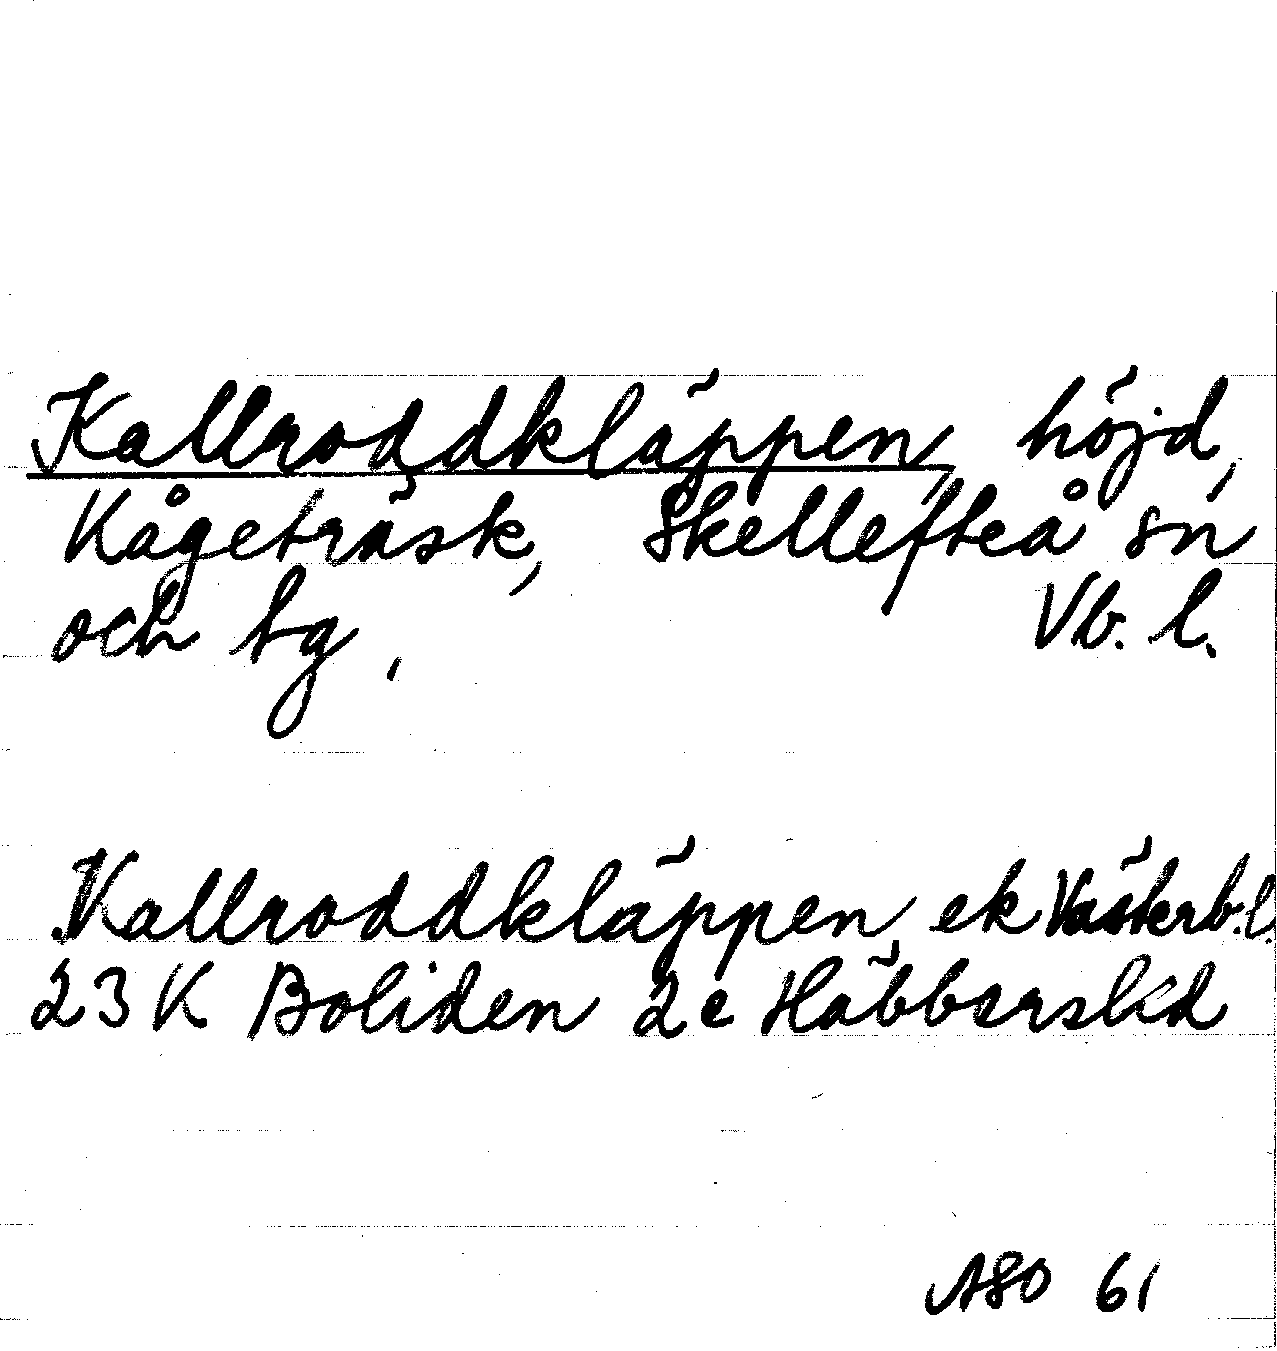 Kallroddkläppen höjd,
Kågeträsk, Skellefteå sn
och tg, Vb. l.
Kallroddkläppen ek Västerb. l.
23 K Boliden 2e Häbbersld
ASO 61